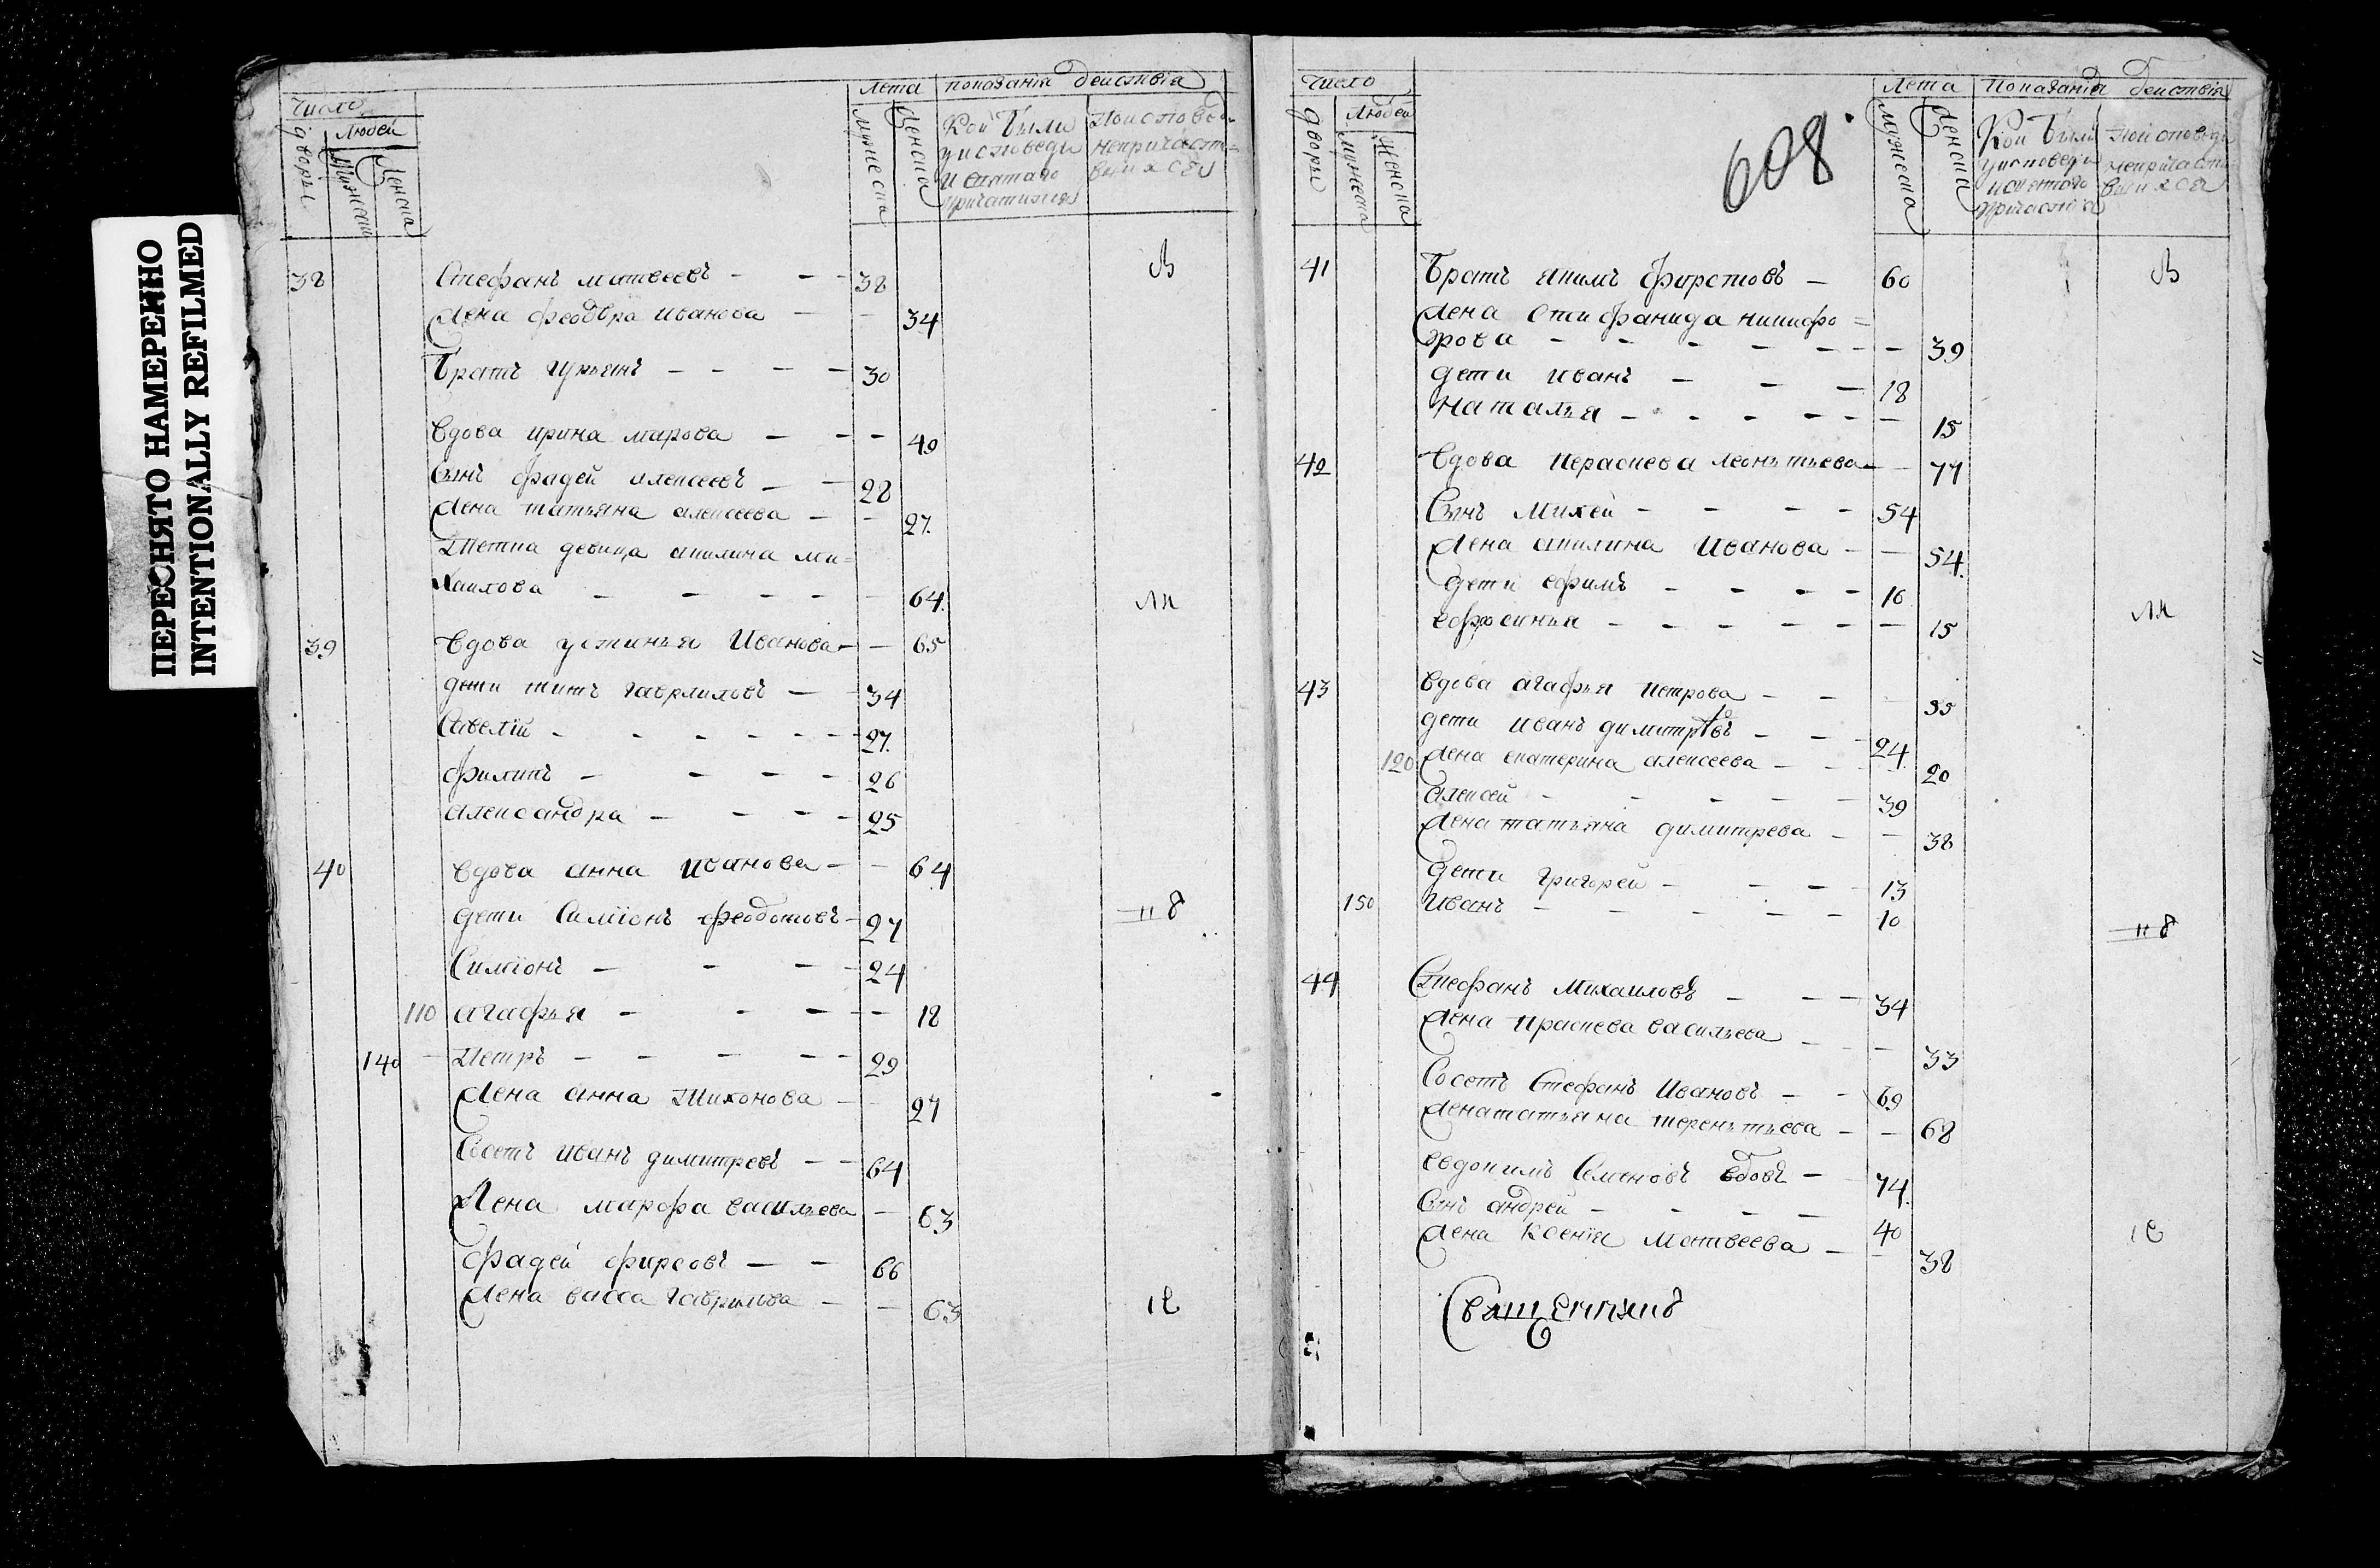 ПЕРЕСНЯТО НАМЕРЕННО
INTENTIONALLY REFILMED
Число
Людей
дворы
Мужеска
Женска
Лета
Мужеска
Женска
показанія действія
Кои были
у исповеди
и святаго
причастия
38 Стефанъ матвеевъ - - - 38
Жена феодора иванова - - 34
братъ гурьянъ - - - - 30
вдова ирина марова - - - 49
Сынъ фадей алексеевъ - - 28
Жена татьяна алексеева - - 27
Тетка девица акилина ми=
хаилова - - - - - 64
39 вдова устинья Иванова - - 65
дети титъ гаврилловъ - - 34
Савелій - - - - - - 27
филипъ - - - - 26
александра - - - - 25
40 вдова анна иванова - - 64
дети Симіонъ феодотовъ - 27
Симіонъ - - - - 24
110 агафья - - - - - 18
140 Петръ - - - - - 29
Жена анна Тихонова - - 27
Соседъ иванъ димитревъ - - 64
Жена марфа васильева - 63
фадей фирсовъ - - 66
Жена васса гаврилова - - 63
В
ЛК
н8
ІЕ
608
Число
Людей
дворы
мужеска
женска
Лета
мужеска
женска
Показанія действія
Кои были
у исповеди
и святаго
причастія
41 братъ якимъ фирстовъ - 60
Жена Стифанида никифо=
рова - - - - - - - 39
дети иванъ - - - 18
наталья - - - - - - - 15
42 вдова параскева леонтьева - - 77
Сынъ Михей - - - - 54
Жена акилина Иванова - - 54
дети ефимъ - - - - 16
ефросинья - - - - - - - 15
43 вдова агафья петрова - - 55
дети иванъ димитревъ - - - 24
120 Жена екатерина алексеева - - 20
алексей - - - - - 39
Жена татьяна димитрева - - 38
дети григорей - - - - 13
150 Иванъ - - - - - 10
44 Стефанъ Михаиловъ - - - 34
Жена праскева васильева - - - 33
Соседъ Стефанъ Ивановъ - - 69
Жена татьяна терентьева - - 68
евдокимъ Семеновъ вдовъ - 74
Сынъ андрей - - - - 40
Жена Ксенія Матвеева - - 38
В
ЛК
н8
ІЕ
Священникъ